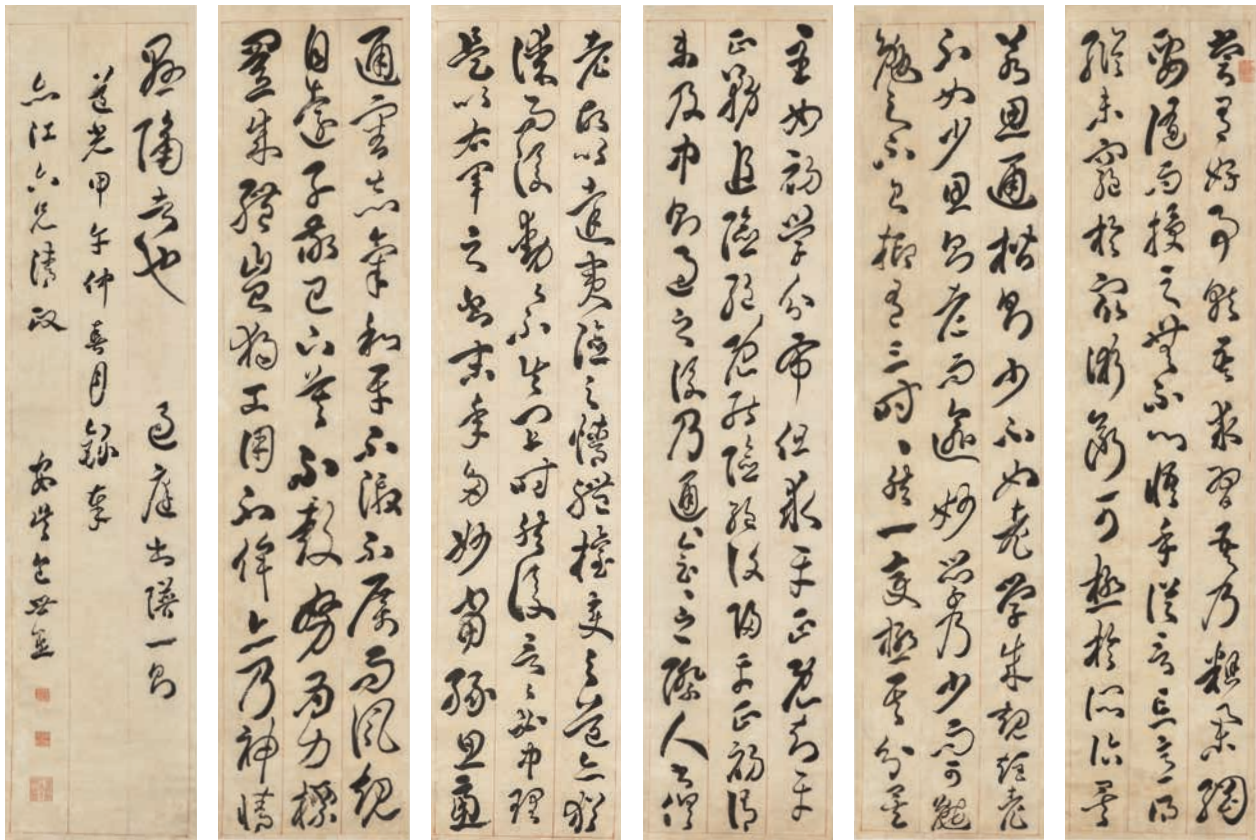 嘗有好事就吾求習吾乃粗舉綱
要隨而授之無不心悟手從言忘意得
縱未窮於眾術斷可極於所詣矣
若思通楷則少不如老學成規矩老
不如少思則老而逾妙學乃少而可勉
勉之不已抑有三時々然一變極其分矣
至如初學分布但求平正既知平
正務追險絕既能險絕復歸平正初謂
未及中則過之後乃通々會々之際人書俱
老故以達夷險之情體權變之道亦猶
謀而後動々不失宜時然後言々必中理
是以右軍之書末年多妙當緣思慮
通審志氣和平不激不厲而風規
自遠子敬已下莫不鼓努為力標
置成體豈獨工用不侔亦乃神情
懸隔者也 過庭書譜一則
道光甲午仲春月錄奉
亦江六兄清政
安吳包世臣